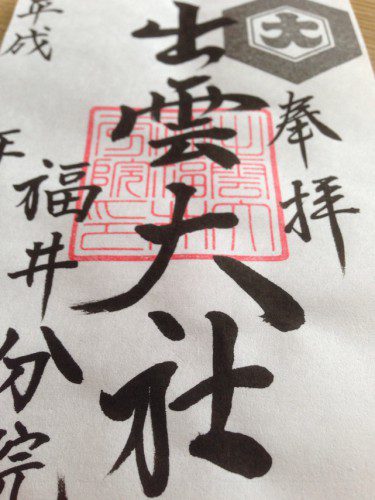 大
奉拝
出雲大社
平成 年
福井分院